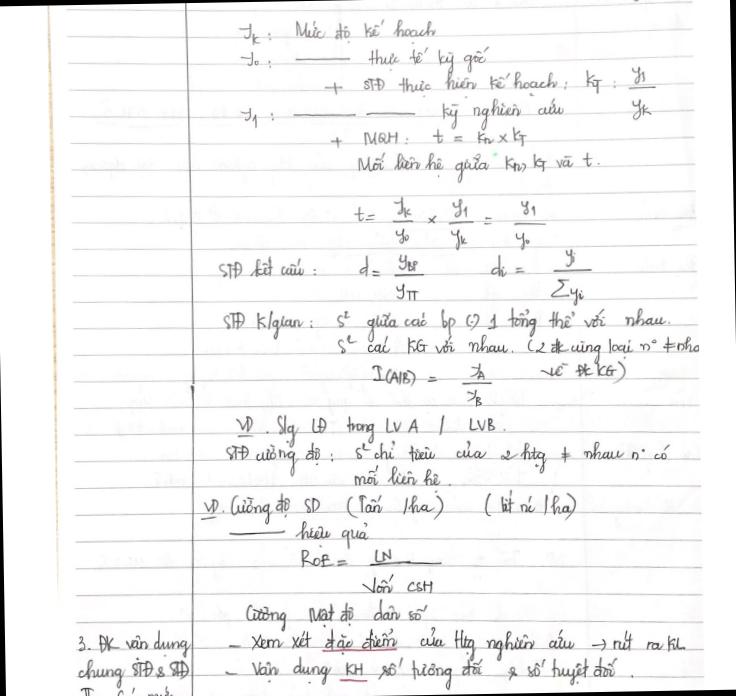 y_k : Mức độ kế hoạch
y_0 : —— thực tế kỳ gốc
+ STĐ thực hiện kế hoạch : K_T : y_1 / y_k
y_1 : —— —— kỳ nghiên cứu
+ MQH : t = K_n × K_T
Mối liên hệ giữa K_n, K_T và t.
t = y_k / y_0 × y_1 / y_k = y_1 / y_0
STĐ kết cấu : d = y_BP / y_TT d_i = y_i / Σy_i
STĐ K/gian : s² giữa các bp (:) 1 tổng thể với nhau.
s² các KG với nhau. (2 đk cùng loại n° ≠ nha
I(A/B) = y_A / y_B về ĐK KG)
VD. Slg LĐ trong LV A / LVB.
STĐ cường độ : s² chỉ tiêu của 2 htg ≠ nhau n° có
mối liên hệ.
VD. Cường độ SD (Tấn /ha) (lít nc /ha)
—— hiệu quả
ROE = LN / Vốn CSH
Cường mật độ dân số
3. ĐK vận dụng – Xem xét đặc điểm của Htg nghiên cứu → rút ra KL
chung STĐ & STĐ – Vận dụng KH số tương đối & số tuyệt đối.